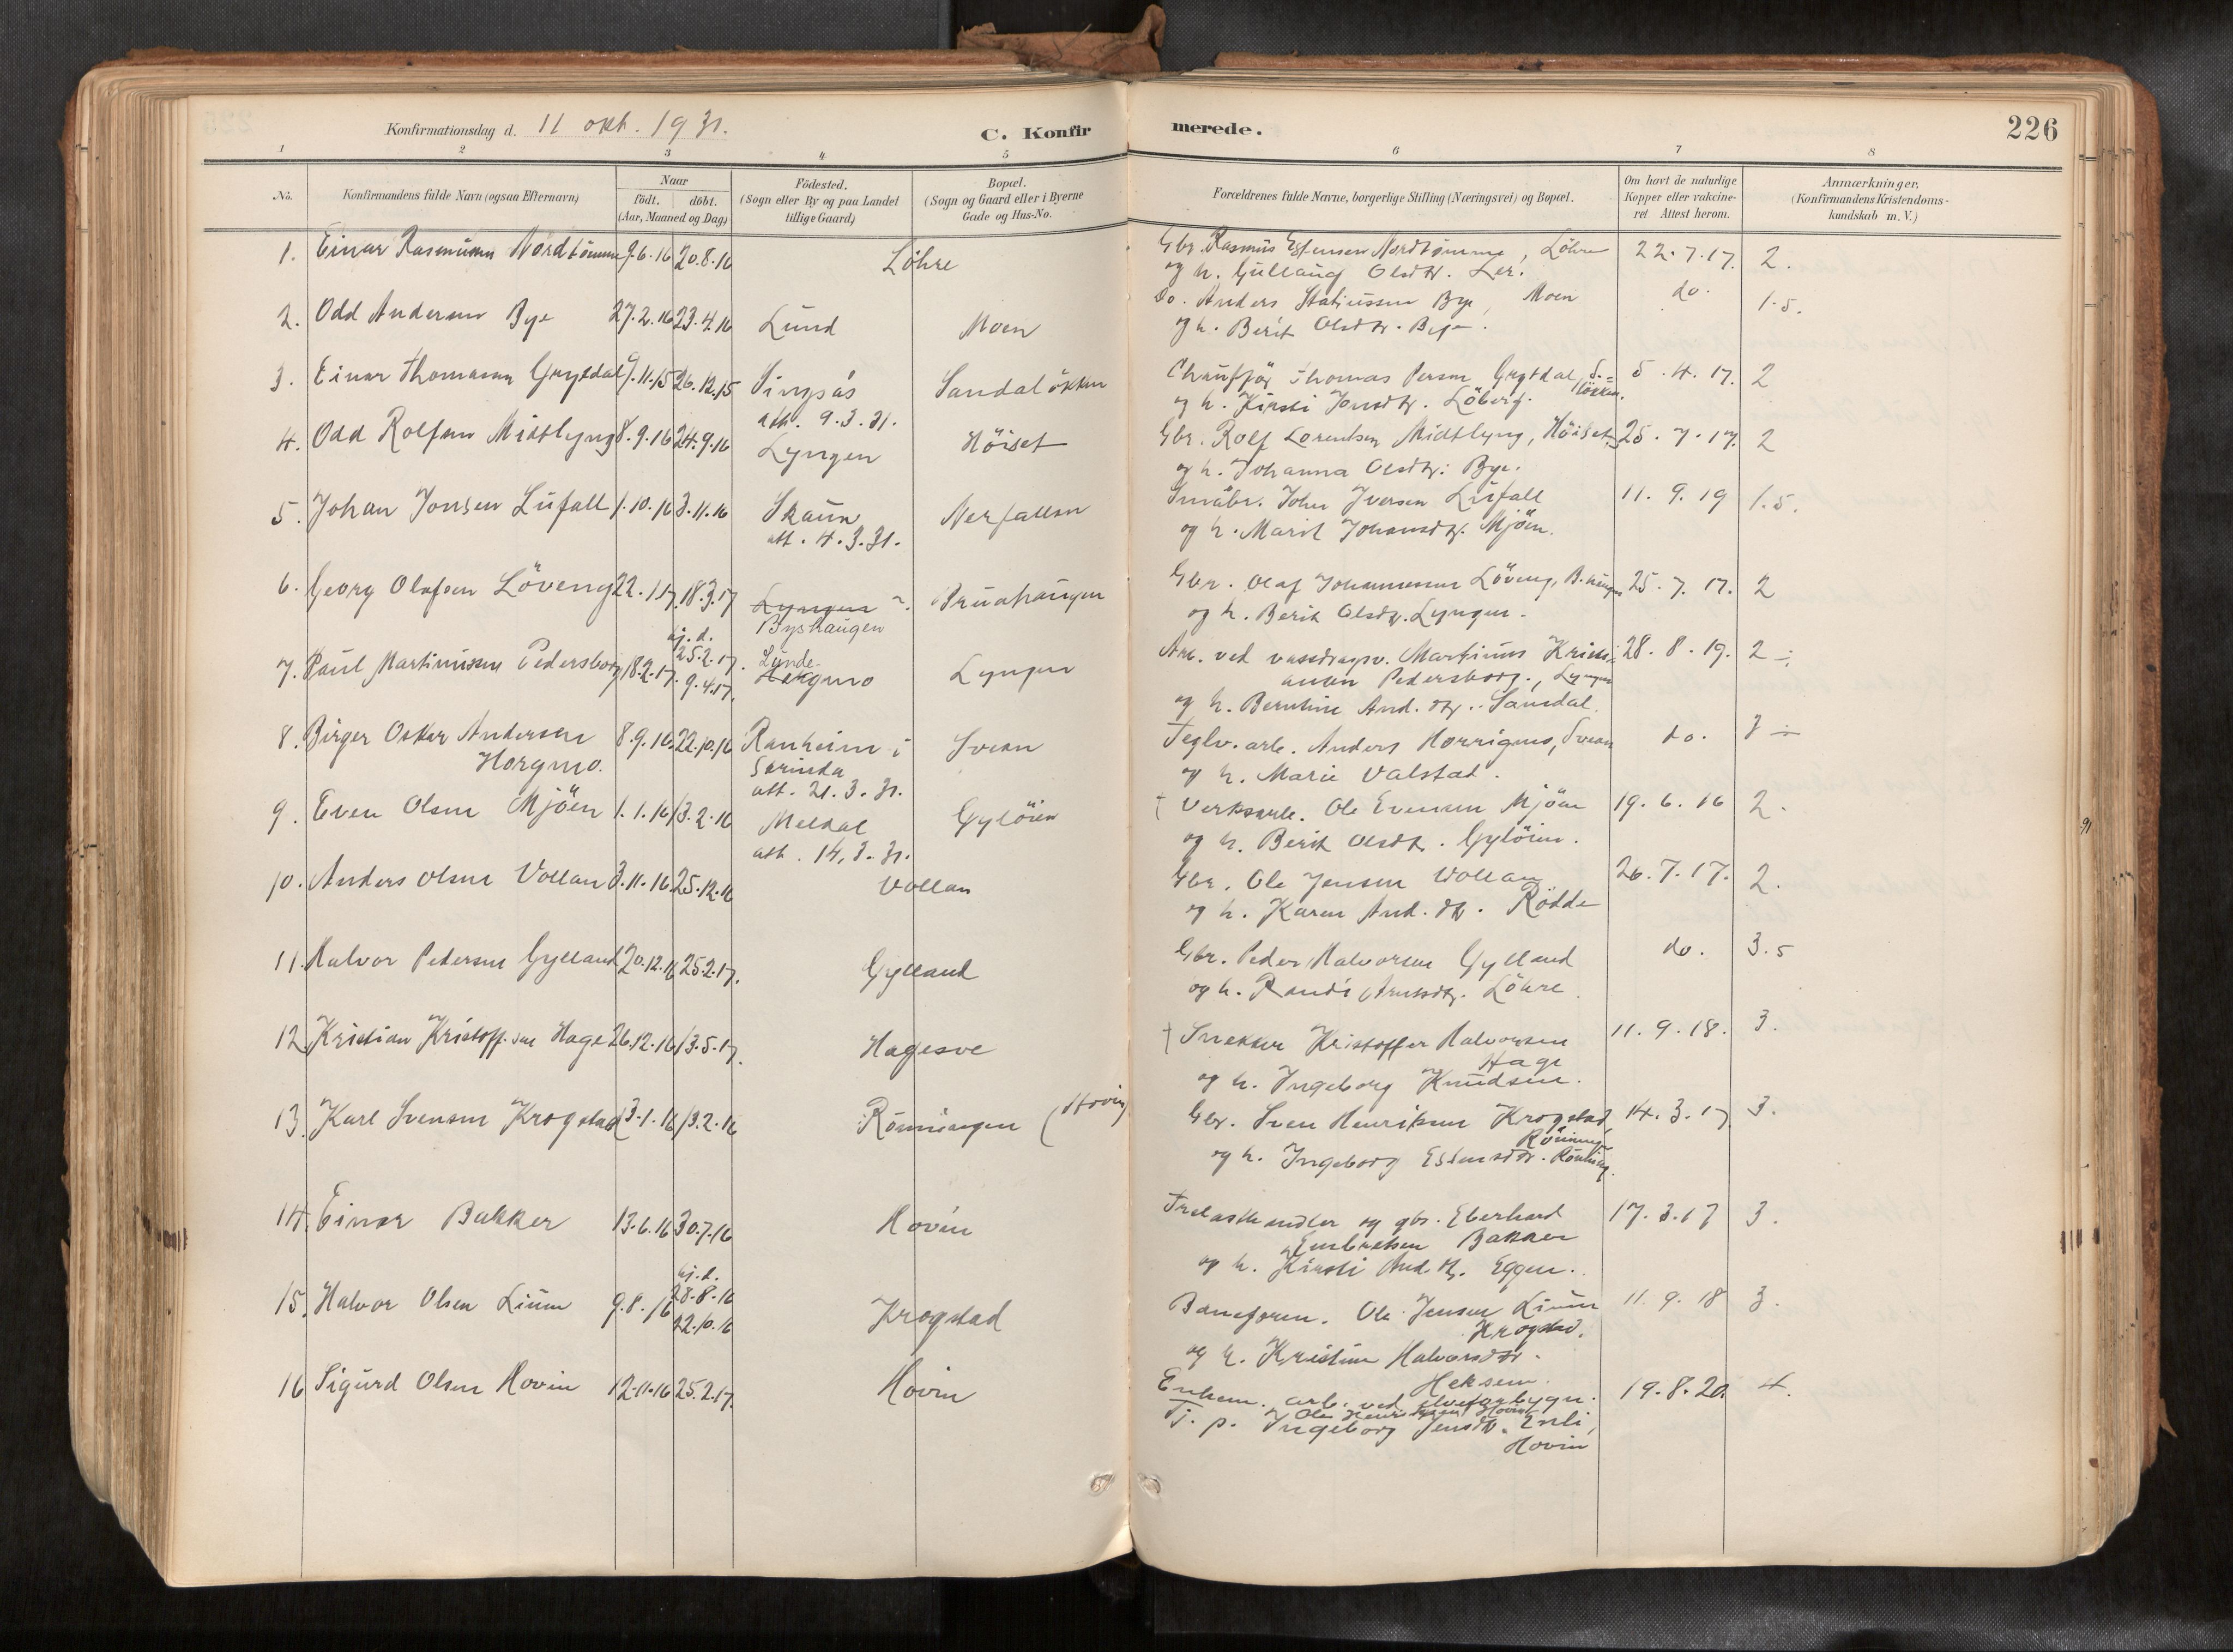 Konfirmationsdag d. 11 okt. 1931.
C. Konfirmerede.
226
1 2 3 4 5 6 7 8
No.
Konfirmandens fulde Navn (ogsaa Efternavn)
Naar
födt. döbt.
(Aar, Maaned og Dag)
Födested.
(Sogn eller By og paa Landet
tillige Gaard)
Bopæl.
(Sogn og Gaard eller i Byerne
Gade og Hus-No.
Forældrenes fulde Navne, borgerlige Stilling (Næringsvei) og Bopæl.
Om havt de naturlige
Kopper eller vakcine-
ret. Attest herom.
Anmærkninger.
(Konfirmandens Kristendoms-
kundskab m. V.)
1. Einar Rasmussen Nordtömme 9.6.16 20.8.16 Löhre Gbr. Rasmus Estensen Nordtömme, Löhre 22.7.17. 2.
og h. Gullaug Olsdtr. Ler.
2. Odd Andersen Bye 27.2.16 23.4.16 Lund Moen Do. Anders Statiussen Bye, Moen do. 1.5.
og h. Berit Olsdtr. Bye.
3. Einar Thomassen Grytdal 9.11.15 26.12.15 Singsås Sandalökken Chauffør Thomas Persen Grytdal, S.- 5.4.17. 2
att. 9.3.31. lökken.
og h. Kirsti Jonsdtr. Löberg.
4. Odd Rolfsen Midtlyng 8.9.16 24.9.16 Lyngen Höiset Gbr. Rolf Lorentsen Midtlyng, Höiset 25.7.17. 2
og h. Johanna Olsdtr. Bye.
5. Johan Jonsen Lufall 1.10.16 3.11.16 Skaun Nerfallan Småbr. John Iversen Lufall 11.9.19 1.5.
att. 4.3.31. og h. Marit Johansdtr. Mjöen.
6. Georg Olafsen Löveng 22.1.17. 18.3.17 Lyngen Bruahaugen Gbr. Olaf Johannessen Löveng, B.haugen 25.7.17. 2
Byshaugen og h. Berit Olsdtr. Lyngen.
7. Paul Martinussen Pedersborg 18.2.17. hj. d. 25.2.17. 9.4.17. Lunde- Lyngen Arb. ved vassdragsv. Martinus Kristi- 28.8.19. 2 ÷
ansen Pedersborg, Lyngen
og h. Berntine And. dtr. Sandal.
8. Birger Oskar Andersen 8.9.16. 22.10.16 Ranheim i Svean Teglv. arb. Anders Horrigmo, Svean do. 3 ÷
Horgmo. Strinda og h. Marie Valstad.
att. 21.3.31.
9. Even Olsen Mjöen 1.1.16 13.2.16 Meldal Gylöien † Verksarb. Ole Evensen Mjöen 19.6.16 2.
att. 14.3.31. og h. Berit Olsdtr. Gylöien.
10. Anders Olsen Vollan 3.11.16 25.12.16 Vollan Gbr. Ole Jensen Vollan 26.7.17. 2.
og h. Karen And. dtr. Rödde
11. Halvor Pedersen Gylland 20.12.16 25.2.17. Gylland Gbr. Peder Halvorsen Gylland do. 3.5
og h. Randi Arntsdtr. Löhre.
12. Kristian Kristoff. sen Hage 26.12.16 13.5.17. Hagesve † Snekker Kristoffer Halvorsen 11.9.18. 3.
Hage
og h. Ingeborg Knudsen.
13. Karl Svensen Krogstad 3.1.16 13.2.16 Rönningen (Hovin) Gbr. Sven Henriksen Krogstad, 14.3.17 3.
Rönningen
og h. Ingeborg Estensdtr. Rönning.
14. Einar Bakker 13.6.16 30.7.16 Hovin Trelasthandler og gbr. Eberhard 17.3.17 3.
Engbretsen Bakker
og h. Kirsti And. dtr. Eggen.
15. Halvor Olsen Lium 9.8.16 hj. d. 28.8.16 22.10.16 Krogstad Baneform. Ole Jensen Lium 11.9.18 3.
Krogstad.
og h. Kristine Halvorsdtr.
Heksem.
16 Sigurd Olsen Hovin 12.11.16 25.2.17. Hovin Enkem. arb. ved elveforbygn. 19.8.20. 4.
Ole Henriksen Hovin
Tj. p. Ingeborg Jensdtr. Enli,
Hovin
91